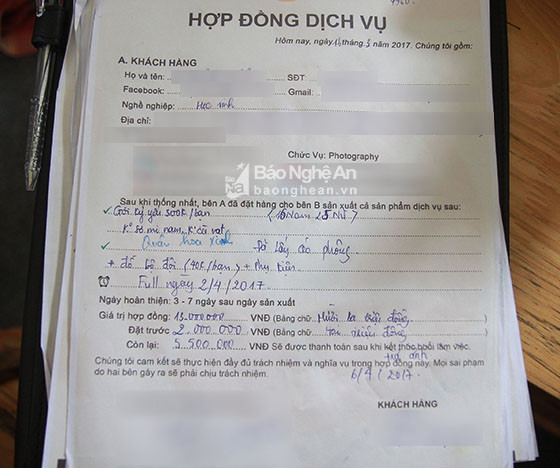 HỢP ĐỒNG DỊCH VỤ
Hôm nay, ngày 14 tháng 3 năm 2017. Chúng tôi gồm:
A. KHÁCH HÀNG
Họ và tên: SĐT
Facebook: Gmail:
Nghề nghiệp: Học sinh
Địa chỉ:
Chức Vụ: Photography
Báo Nghệ An
baonghean.vn
Sau khi thống nhất, bên A đã đặt hàng cho bên B sản xuất cả sản phẩm dịch vụ sau:
Gói kỷ yếu 500K/bạn (16 Nam 25 Nữ)
K° sơ mi nam, K° cà vạt
Quần hoa Đã lấy áo phông
+ đồ bộ đội (40K/bạn) + Phụ kiện
Full ngày 2/4/2017
Ngày hoàn thiện: 3 - 7 ngày sau ngày sản xuất
Giá trị hợp đồng: 13.000.000 VNĐ (Bằng chữ: Mười ba triệu đồng)
Đặt trước 2.000.000 VNĐ (Bằng chữ: hai triệu đồng)
Còn lại: 5.500.000 VNĐ Sẽ được thanh toán sau khi kết thúc buổi làm việc.
ảnh
Chúng tôi cam kết sẽ thực hiện đầy đủ trách nhiệm và nghĩa vụ trong hợp đồng này. Mọi sai phạm
do hai bên gây ra sẽ phải chịu trách nhiệm. 6/4/2017
KHÁCH HÀNG